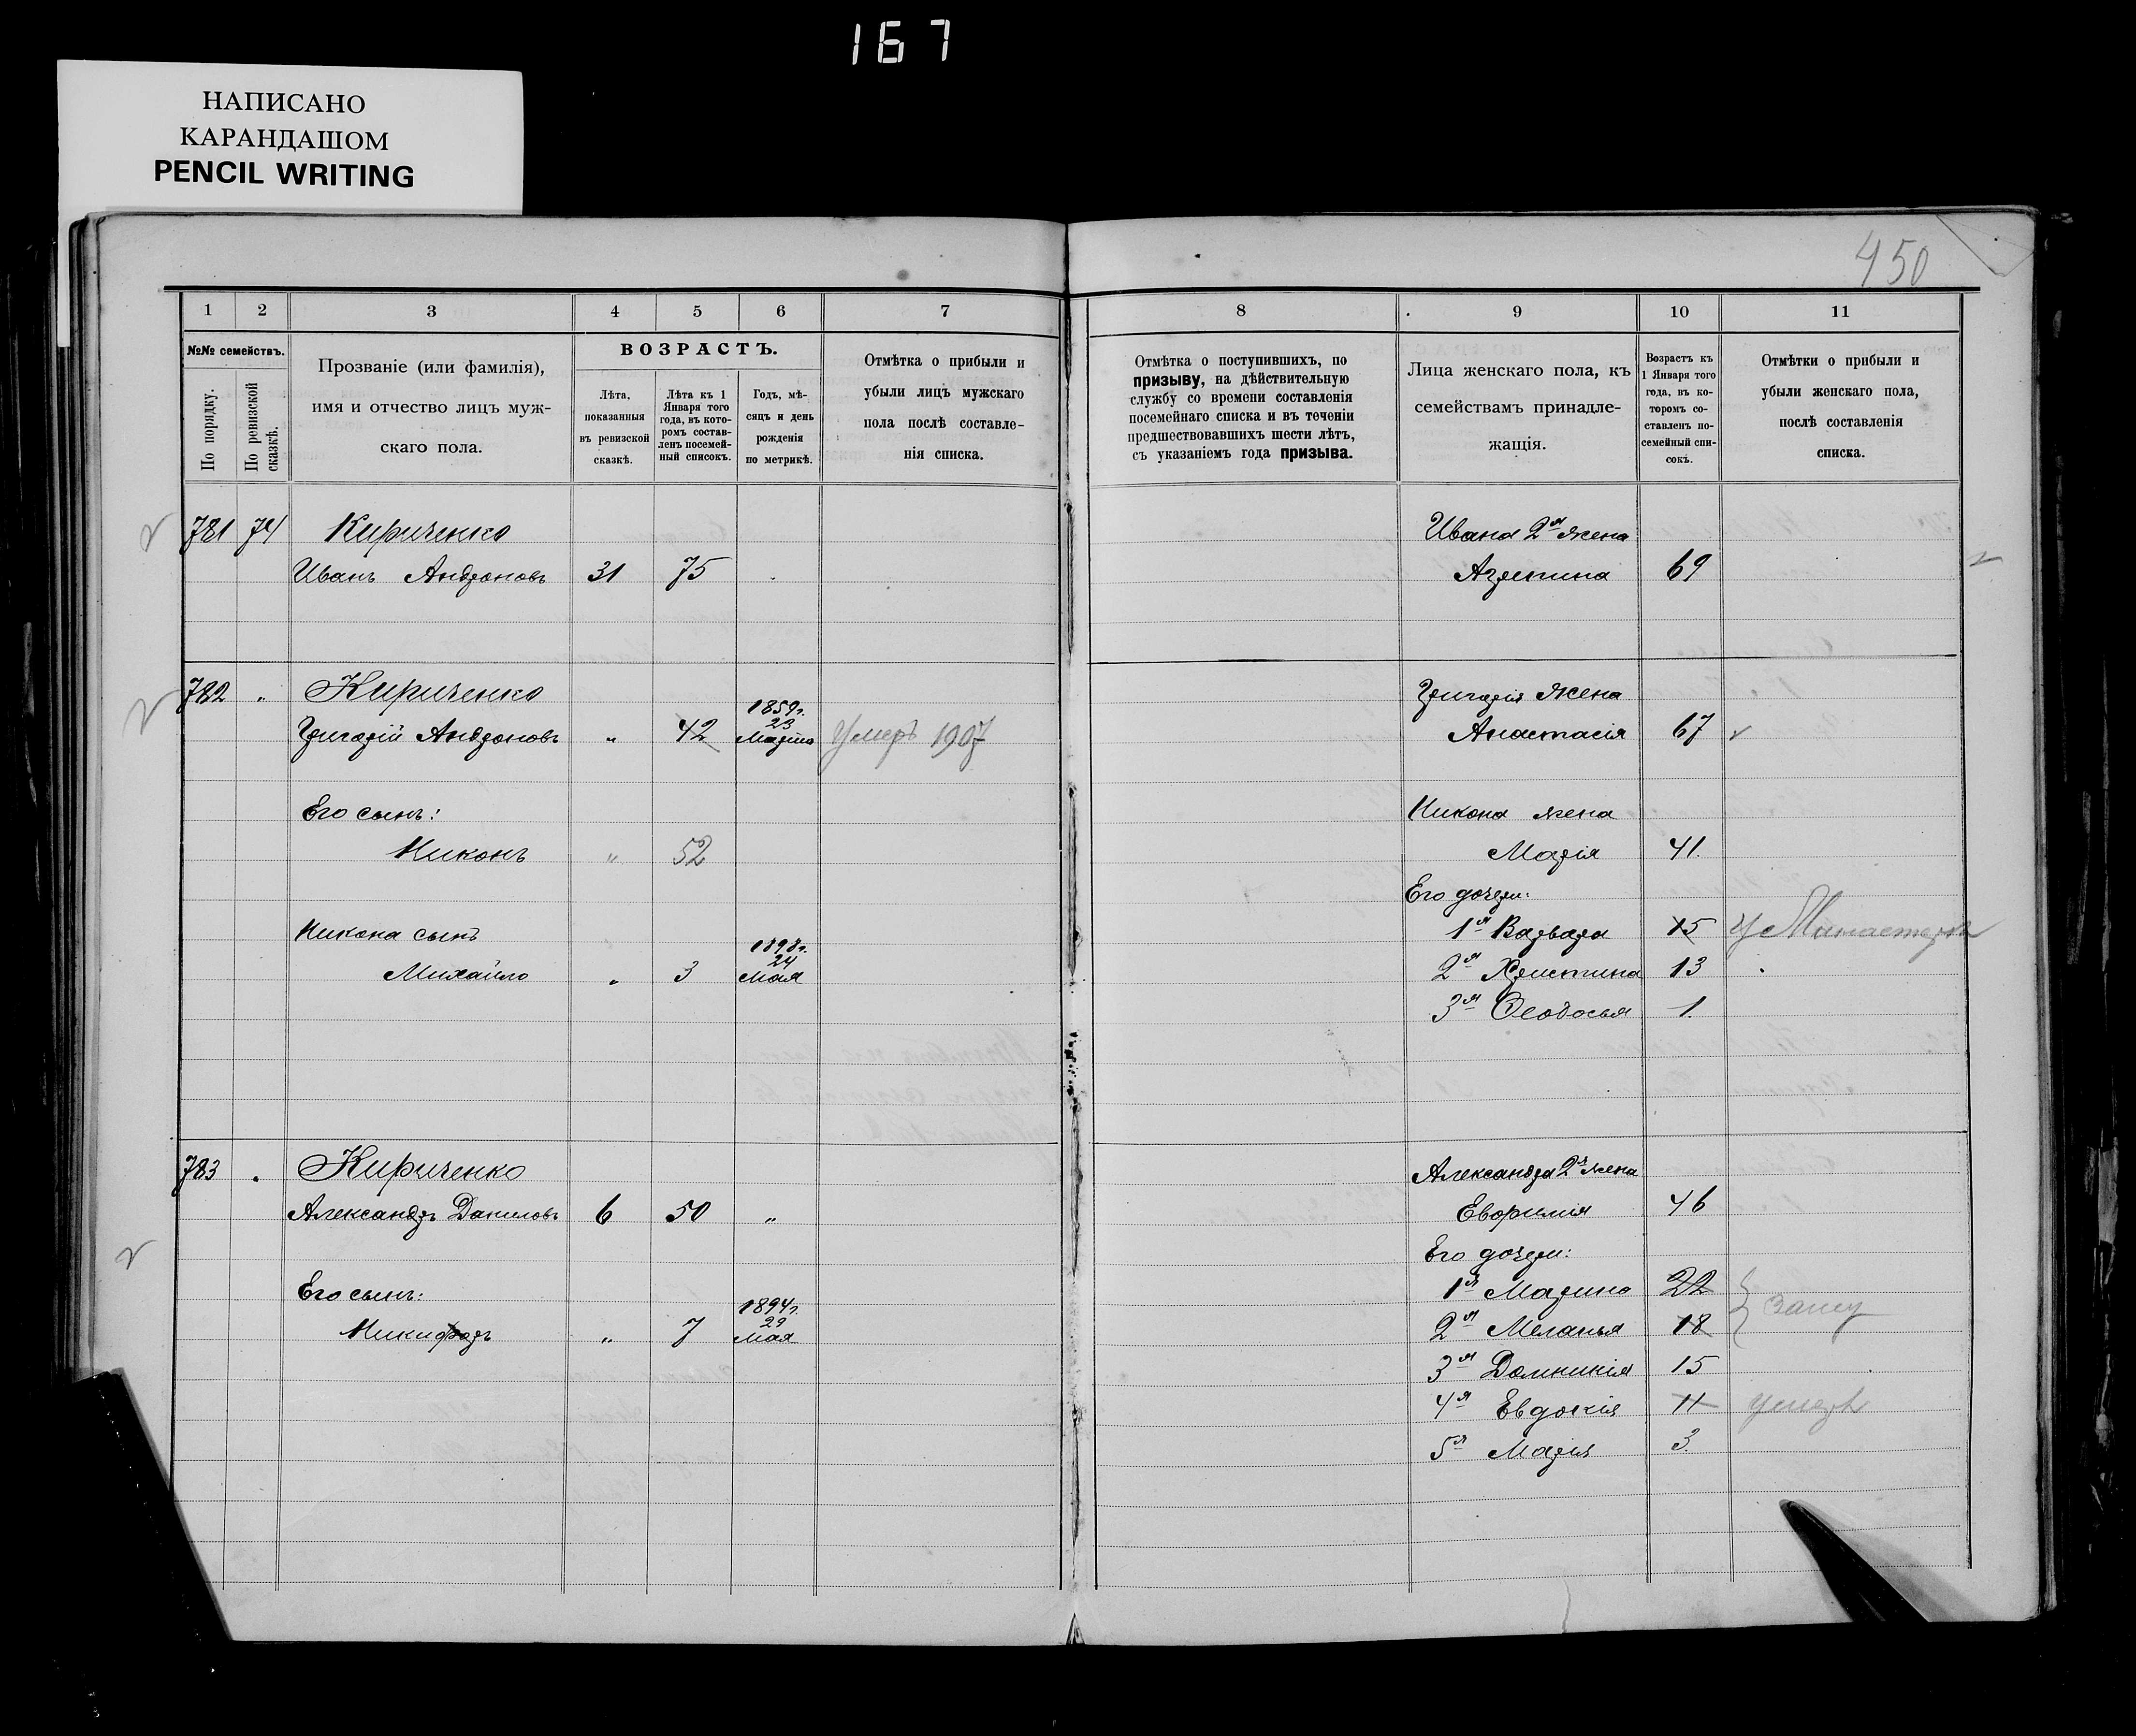 167
НАПИСАНО
КАРАНДАШОМ
PENCIL WRITING
450
1 2 3 4 5 6 7
№№ семействъ.
По порядку.
По ревизской сказкѣ.
Прозваніе (или фамилія),
имя и отчество лицъ муж-
скаго пола.
ВОЗРАСТЪ.
Лѣта,
показанныя
въ ревизской
сказкѣ.
Лѣта къ 1
Января того
года, въ кото-
ромъ состав-
ленъ посемей-
ный списокъ.
Годъ, мѣ-
сяцъ и день
рожденія
по метрикѣ.
Отмѣтка о прибыли и
убыли лицъ мужскаго
пола послѣ составле-
нія списка.
781 74 Кириченко
Иванъ Андроновъ 31 75
782 " Кириченко
Григорій Андроновъ " 42 1859г. 23 Марта Умеръ 1907
Его сынъ:
Никонъ " 52
Никона сынъ
Михайло " 3 1898г. 24 Мая
783 " Кириченко
Александръ Даниловъ 6 50 "
Его сынъ:
Никифоръ " 7 1894г. 29 Мая
8 9 10 11
Отмѣтка о поступившихъ, по
призыву, на дѣйствительную
службу со времени составленія
посемейнаго списка и въ теченіи
предшествовавшихъ шести лѣтъ,
съ указаніемъ года призыва.
Лица женскаго пола, къ
семействамъ принадле-
жащія.
Возрастъ къ
1 Января того
года, въ ко-
торомъ со-
ставленъ по-
семейный спи-
сокъ.
Отмѣтки о прибыли и
убыли женскаго пола,
послѣ составленія
списка.
Ивана 2я жена
69
Григорія жена
Анастасія 67
Никона жена
Марія 41.
Его дочери:
1я Варвара 15
2я Христина 13
3я Ѳеодосья 1.
Александра 2я жена
Евфимія 46
Его дочери:
1я Марина 22
2я Меланья 18
3я Домникія 15
4я Евдокія 11
5я Марія 3